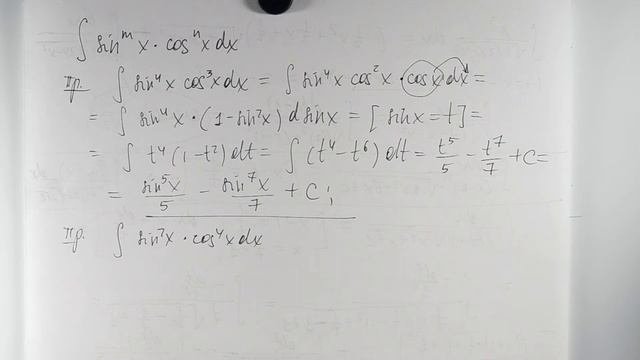 ∫ sin^m x · cos^n x dx
пр. ∫ sin⁴x cos³x dx = ∫ sin⁴x cos²x · cosx dx =
= ∫ sin⁴x · (1 - sin²x) d sinx = [ sinx = t ] =
= ∫ t⁴(1 - t²) dt = ∫ (t⁴ - t⁶) dt = t⁵/5 - t⁷/7 + C =
= sin⁵x/5 - sin⁷x/7 + C;
пр. ∫ sin²x · cos⁴x dx